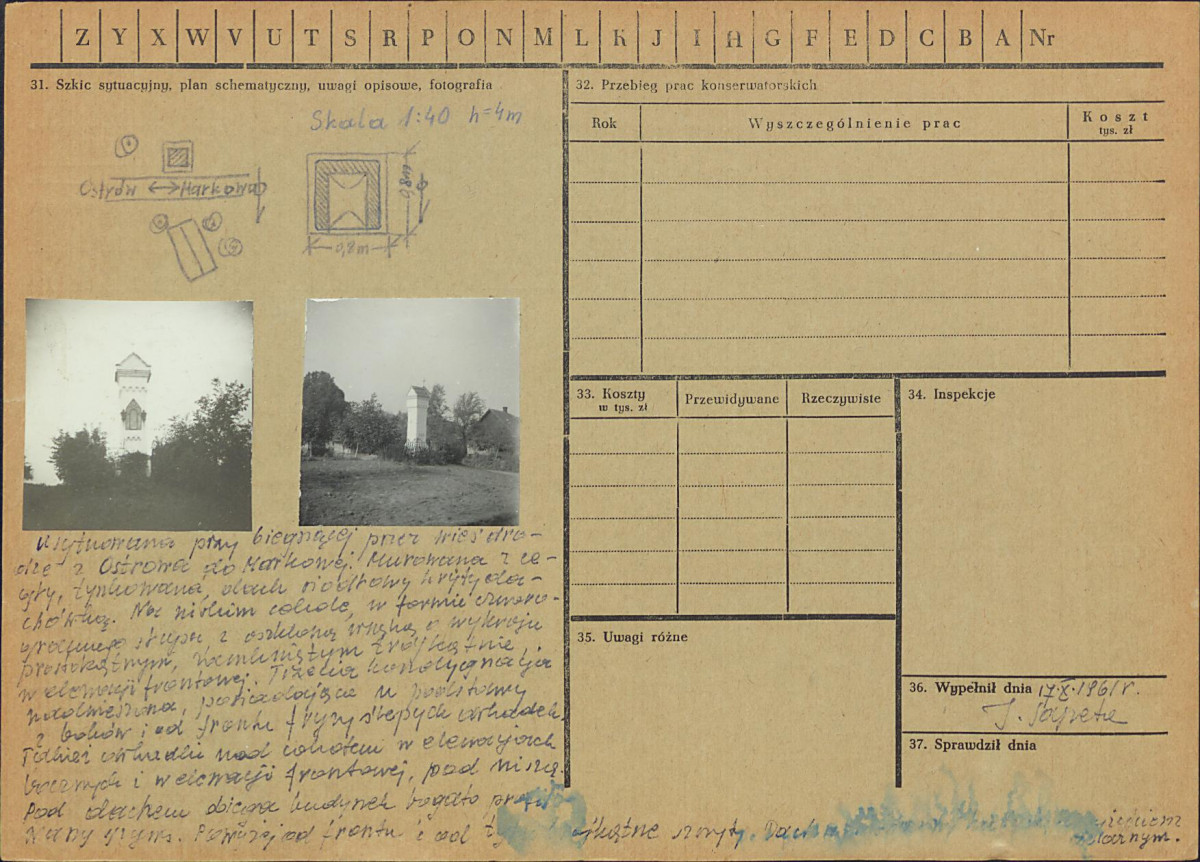 Z Y X W V U T S R P O N M L K J I H G F E D C B A Nr
31. Szkic sytuacyjny, plan schematyczny, uwagi opisowe, fotografia
Skala 1:40 h=4m
Ostrów ↔ Markowa
0,8m
0,8m
usytuowana przy biegnącej przez wieś dro-
dze z Ostrowa do Markowej. Murowana z ce-
gły, tynkowana, dach siodłowy kryty da-
chówką. Na niskim cokole, w formie czworo-
bocznego słupa z oszkloną wnęką o wykroju
prostokątnym, zamkniętym trójkątnie,
w elewacji frontowej. Trzecia kondygnacja
nadwieszona, posiadająca u podstawy
z boków i od frontu fryzy ślepych arkadek.
Takież arkadki nad cokołem w elewacjach
bocznych i w elewacji frontowej, pod niszą.
Pod dachem obiega budynek bogato profilo-
wany gzyms. Powyżej od frontu i od szczyty. Dach
32. Przebieg prac konserwatorskich
Rok
Wyszczególnienie prac
Koszt
tys. zł
33. Koszty
w tys. zł
Przewidywane
Rzeczywiste
34. Inspekcje
35. Uwagi różne
36. Wypełnił dnia 17.X.1961 r.
37. Sprawdził dnia